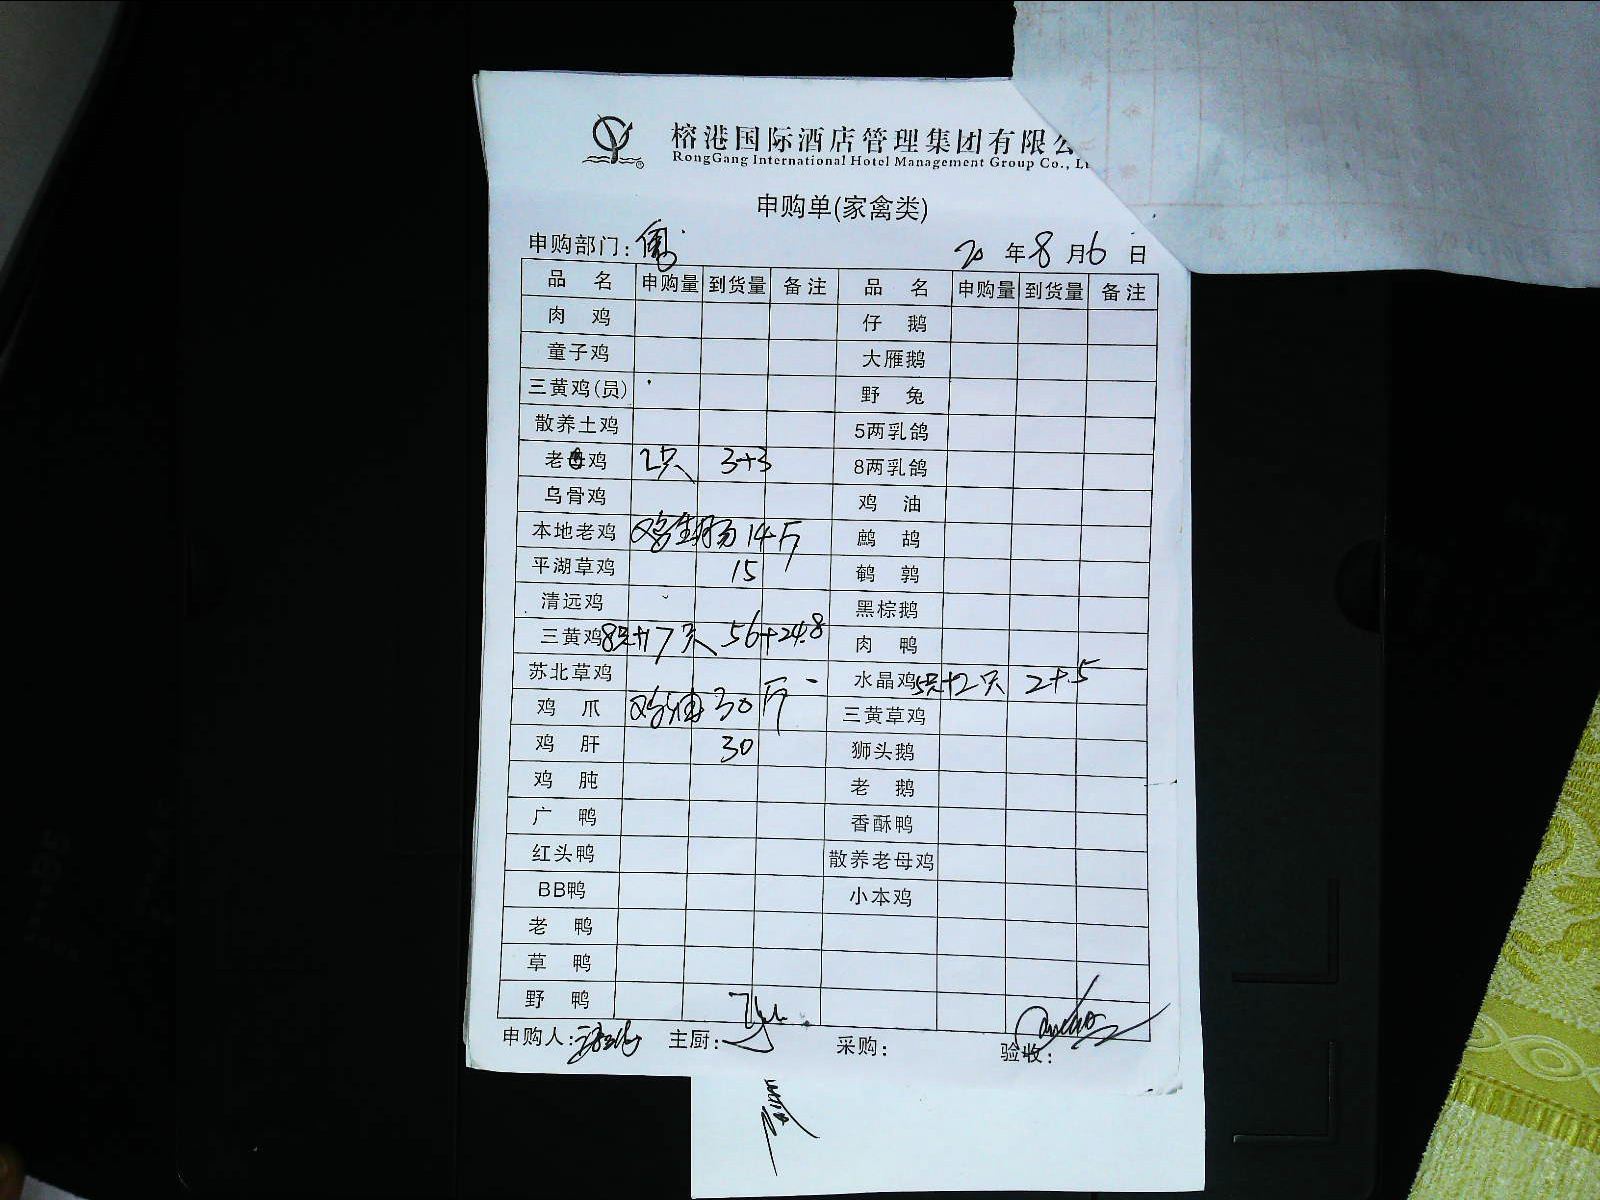 榕港国际酒店管理集团有限公
RongGang International Hotel Management Group Co., Lt
申购单(家禽类)
申购部门: 20 年 8 月 6 日
品 名 申购量 到货量 备注 品 名 申购量 到货量 备注
肉 鸡 仔 鹅
童子鸡 大雁鹅
三黄鸡(员) 野 兔
散养土鸡 5两乳鸽
老母鸡 2只 3+3 8两乳鸽
乌骨鸡 鸡 油
本地老鸡 鸡生肠 14斤 鹧 鸪
平湖草鸡 15 鹌 鹑
清远鸡 黑棕鹅
三黄鸡 8只+17只 56+24.8 肉 鸭
苏北草鸡 水晶鸡 5只+2只 2+5
鸡 爪 鸡油 30斤 三黄草鸡
鸡 肝 30 狮头鹅
鸡 肫 老 鹅
广 鸭 香酥鸭
红头鸭 散养老母鸡
BB鸭 小本鸡
老 鸭
草 鸭
野 鸭
申购人: 主厨: 采购: 验收: